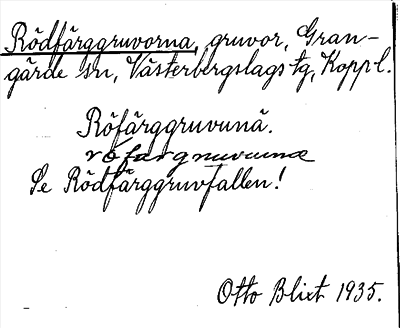 Rödfärggruvorna, gruvor, Gran-
gärde sn, Västerbergslags tg, Koppl.
Röfärggruvunä.
röfärgruvunä
Se Rödfärggruvfallen!
Otto Blixt 1935.